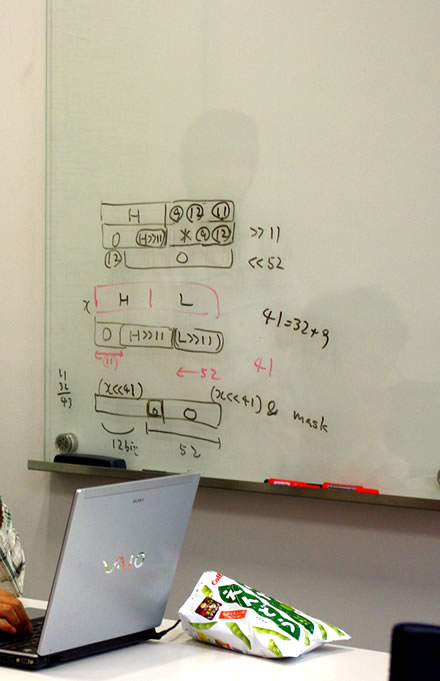 H 9 12 11
0 H>>11 * 9 12 >>11
12 0 <<52
x H L
41=32+9
0 H>>11 L>>11
(11) 52 41
11
32
43
(x<<41) 0 (x<<41) & mask
12bit 52
SONY
VAIO